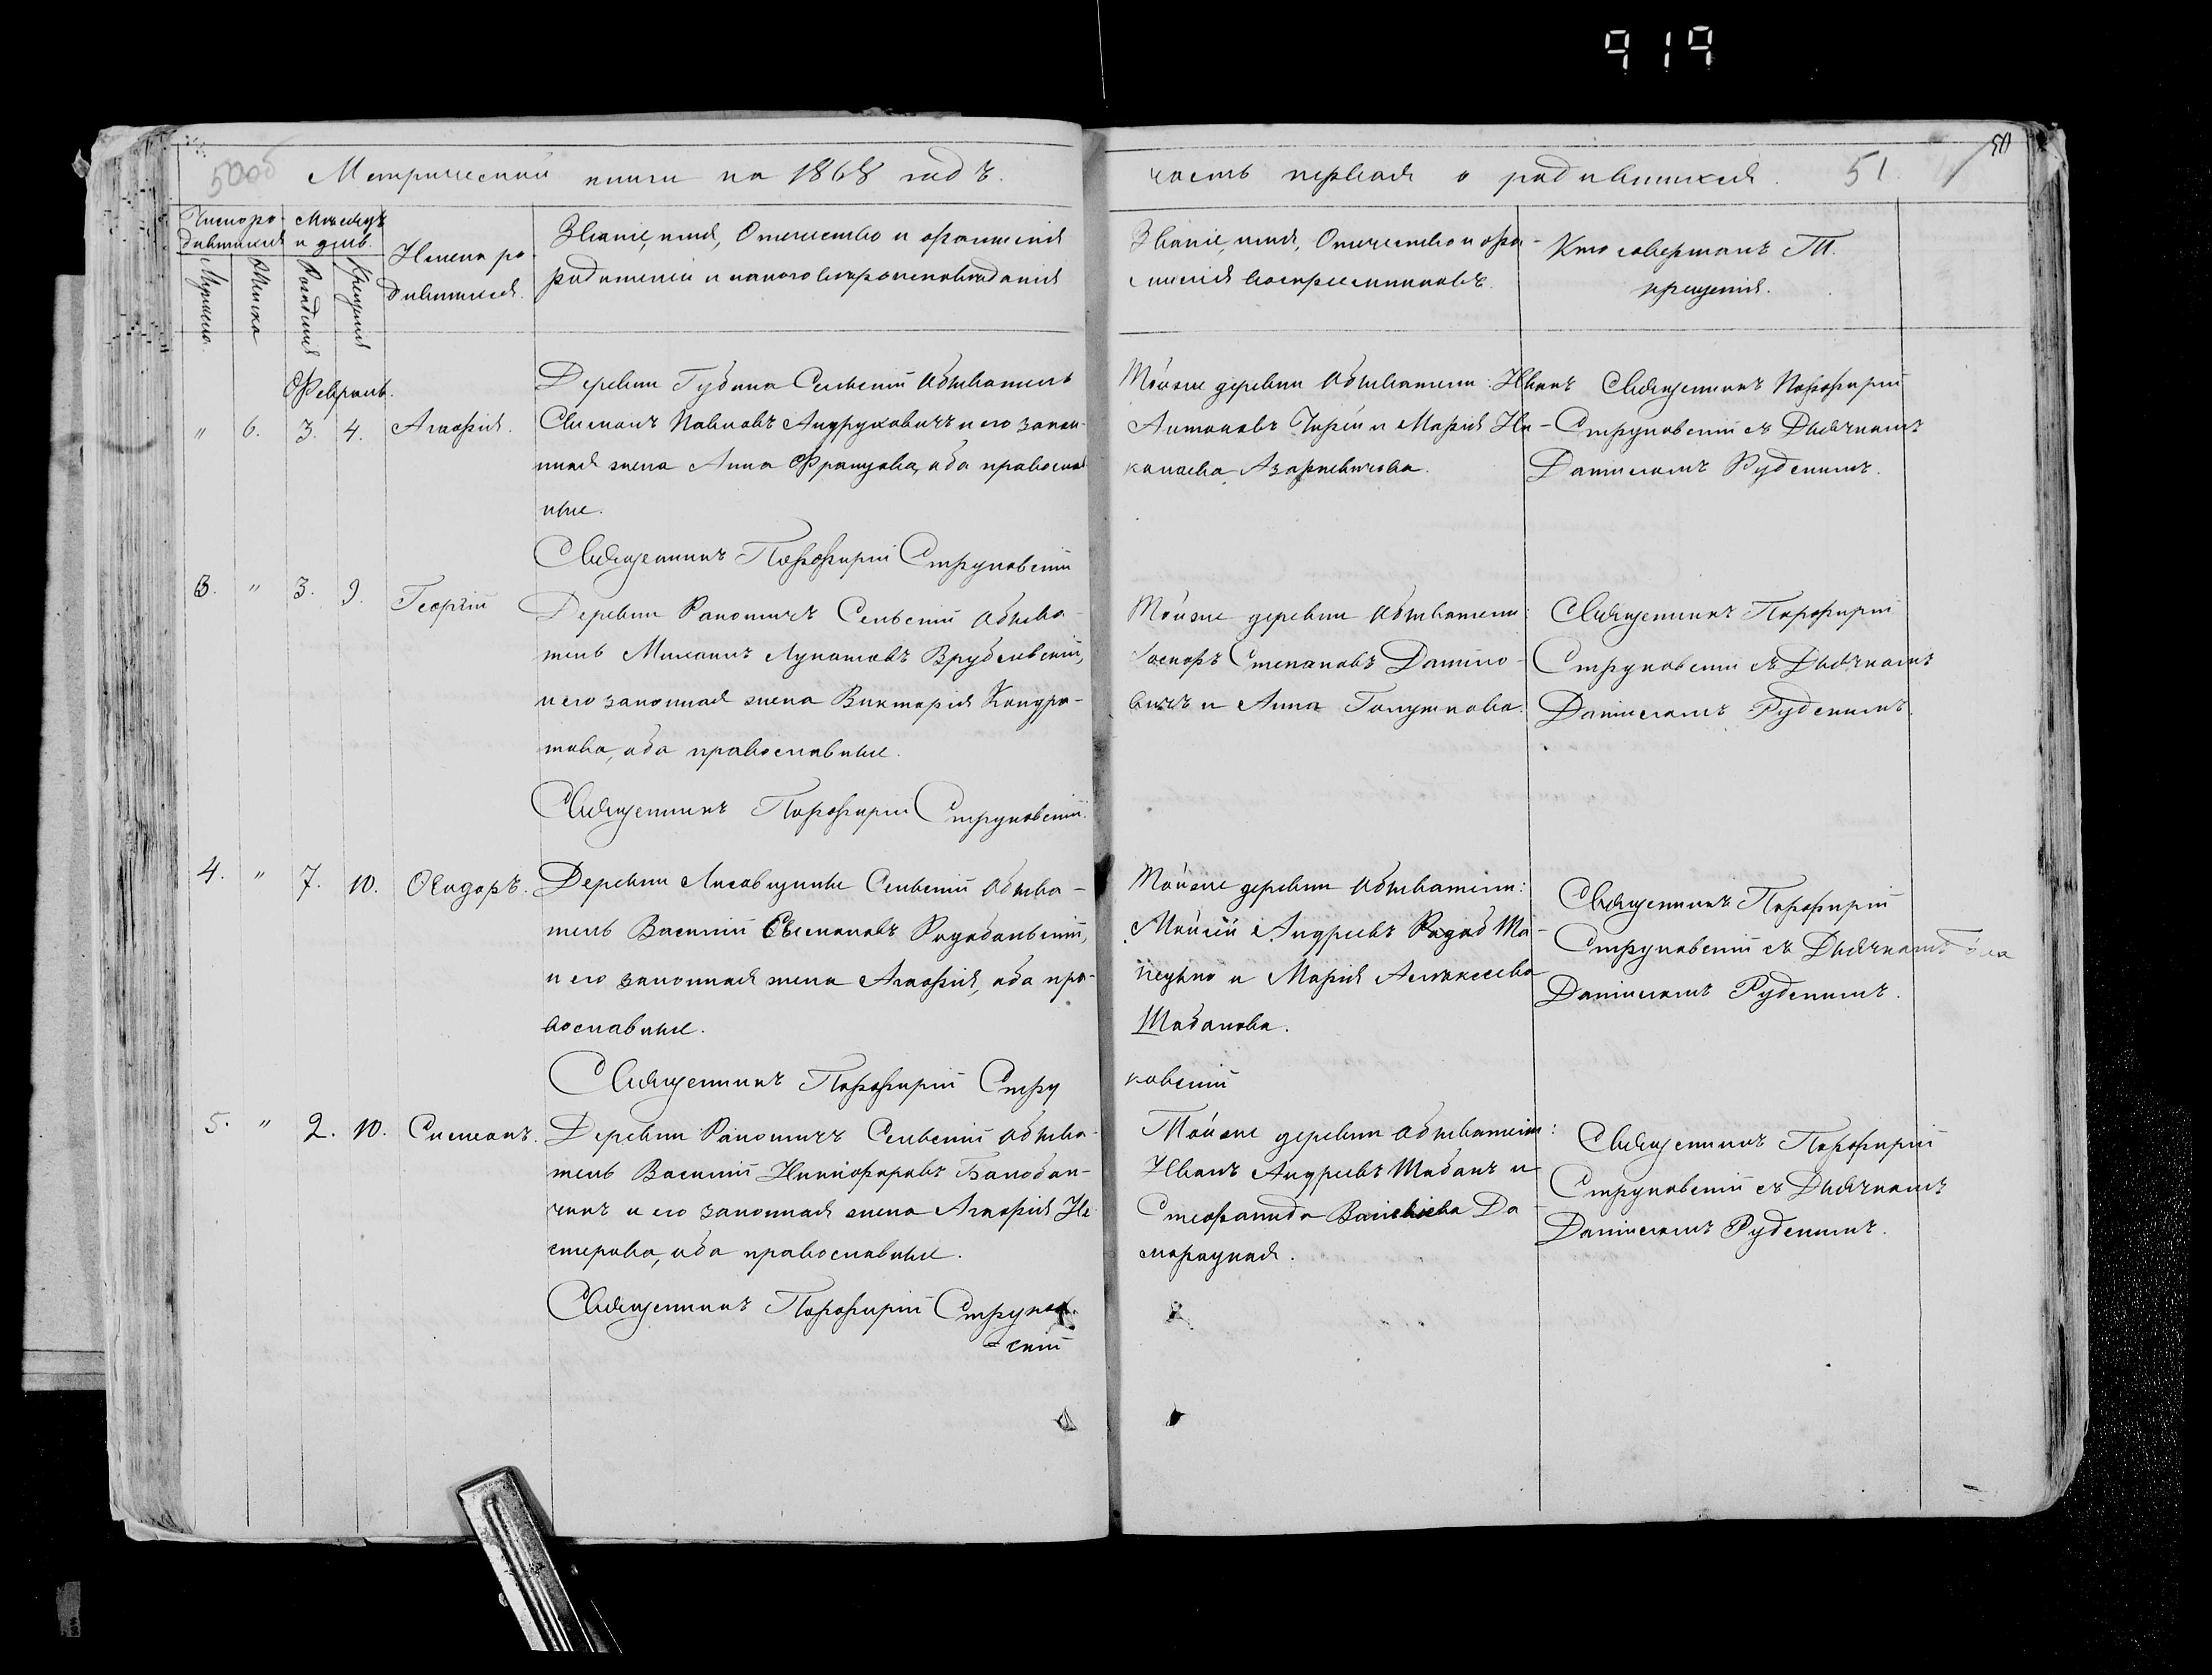 919
50об Метрической книги на 1868 годъ.
Число родившихся
Мѣсяцъ и день.
Имена родившихся.
Званіе, имя, Отчество и фамилія
родителей и какого вѣроисповѣданія
Мужеска.
Женска
Рожденія
Крещенія
Февраль.
" 6. 3. 4. Агафія.
Деревни Губина Сельскій Обыватель
Симеонъ Павловъ Андруховичъ и его закон-
ная жена Анна Францова, оба православ
ные.
Священникъ Порфирій Струковскій
3. " 3. 9. Георгій
Деревни Раполичъ Сельскій Обыва-
тель Михаилъ Лукашовъ Врублевскій,
и его законная жена Викторія Кондра-
това, оба православные.
Священникъ Порфирій Струковскій.
4. " 7. 10. Ѳеодоръ.
Деревни Лисовщины Сельскій Обыва-
тель Василій Симеоновъ
и его законная жена Агафія, оба пра-
вославные.
Священникъ Порфирій Стру
5. " 2. 10. Симеонъ.
Деревни Раполичъ Сельскій Обыва-
тель Василій Никифоровъ Балобан-
чикъ и его законная жена Агафія Не-
стерова, оба православные.
Священникъ Порфирій Струков
=скій
часть первая о родившихся. 51. 50
Званіе, имя, Отчество и фа-
милія воспреемниковъ.
Кто совершалъ Т.
крещенія.
Тойже деревни Обыватели: Иванъ
Антоновъ и Марія Ни-
колаева Азаркевичова.
Священникъ Порфирій
Струковскій съ Дьячкомъ
Даниломъ Руденимъ.
Тойже деревни Обыватели:
Степановъ Данило-
вичъ и Анна Голушкова.
Священникъ Порфирій
Струковскій съ Дьячкомъ
Даниломъ Руденимъ.
Тойже деревни Обыватели:
Мойсей Андреевъ
и Марія Алексеева
Шабанова.
Священникъ Порфирій
Струковскій съ Дьячкомъ
Даниломъ Руденимъ.
ковскій
Тойже деревни Обыватели:
Иванъ Андреевъ Шабанъ и
Стефанида До
морацкая.
Священникъ Порфирій
Струковскій съ Дьячкомъ
Даниломъ Руденимъ.